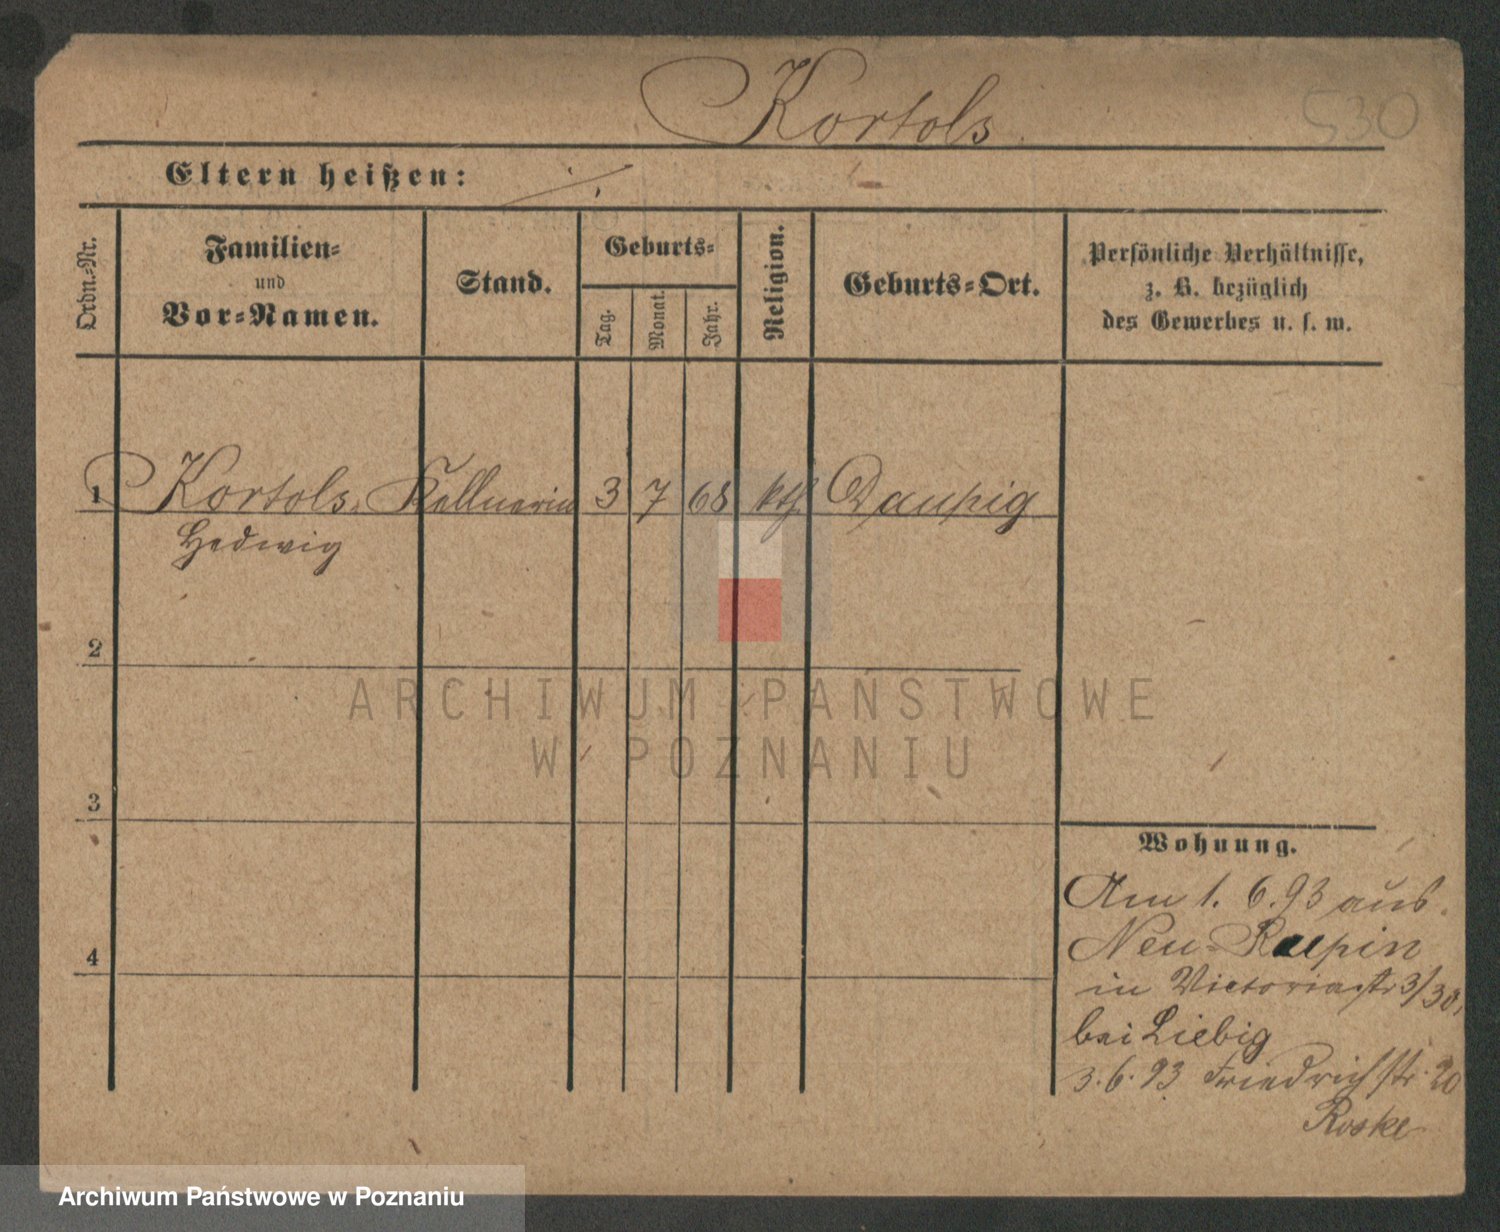 Kortols.
530
Eltern heißen: ./.
Ordn.=Nr.
Familien=
und
Vor=Namen.
Stand.
Geburts=
Tag.
Monat.
Jahr.
Religion.
Geburts=Ort.
Persönliche Verhältnisse,
z. B. bezüglich
des Gewerbes u. s. w.
1 Kortols, Kellnerin 3 7 68 kth
Hedwig
2
3
4
Wohnung.
Am 1. 6. 93 aus
Neu=
in Victoriastr 3/30,
bei Liebig
3. 6. 93 Friedrichstr. 20
Roske
ARCHIWUM PAŃSTWOWE
W POZNANIU
Archiwum Państwowe w Poznaniu